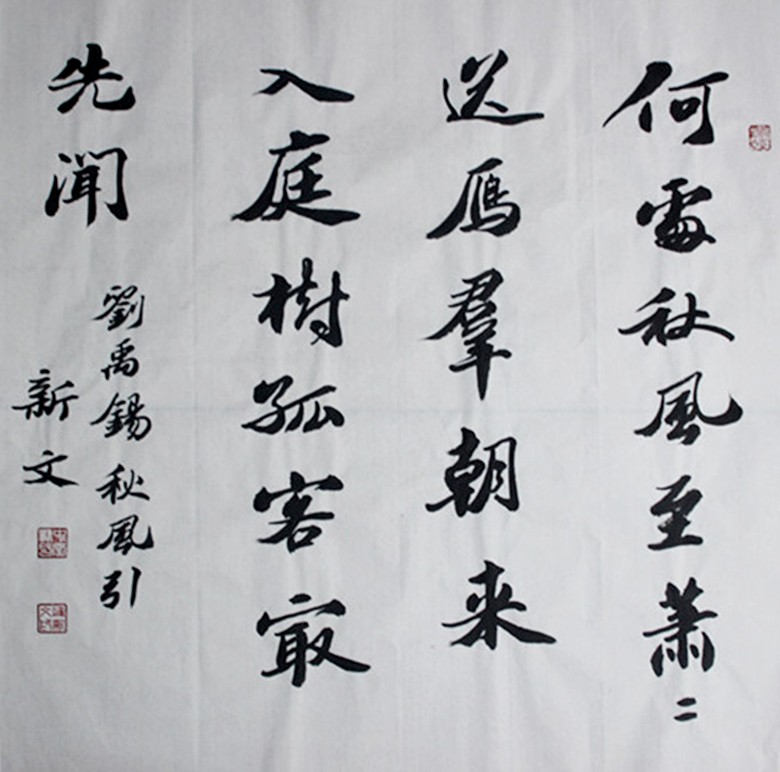 何處秋風至蕭〻
送鴈羣朝来
入庭樹孤客㝡
先聞
劉禹錫秋風引
新文